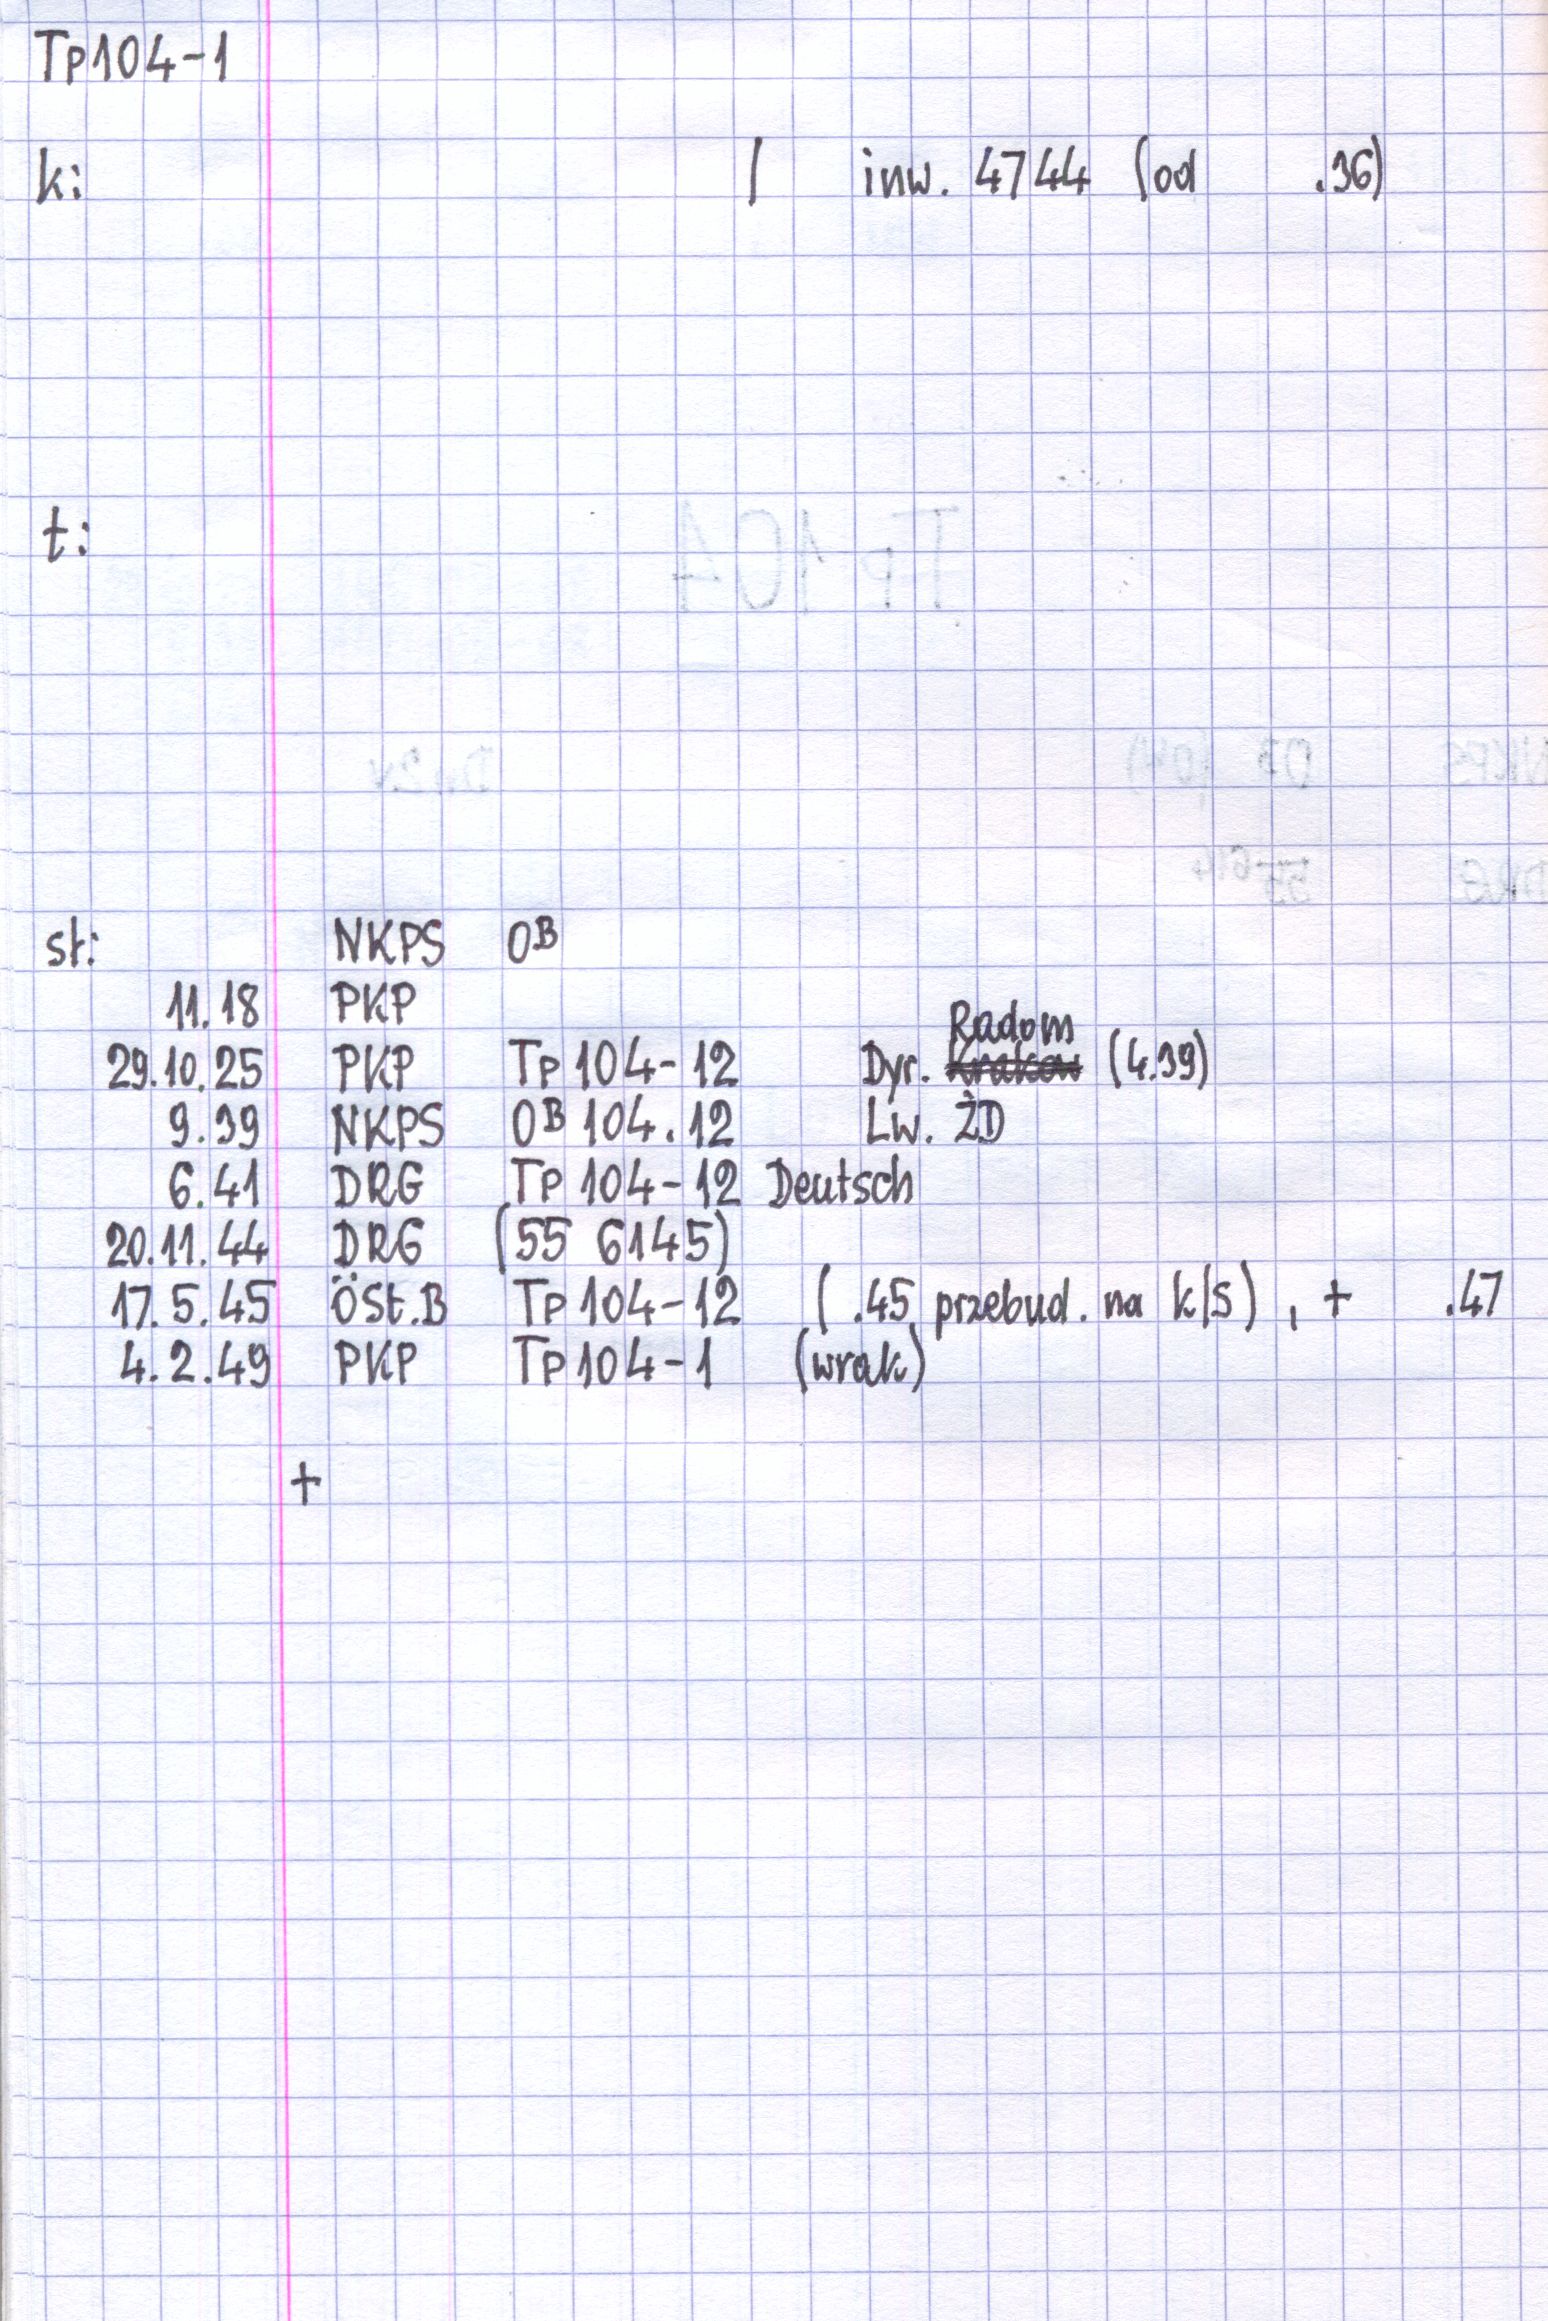 Tp104-1
k: / inw. 4744 (od .36)
t:
st: NKPS OB
11.18 PKP
Radom
29.10.25 PKP Tp104-12 Dyr. Krakow (4.39)
9.39 NKPS OB 104.12 Lw. ŻD
6.41 DRG Tp104-12 Deutsch
20.11.44 DRG (55 6145)
17.5.45 ÖSt.B Tp104-12 ( .45 przebud. na k/s), + .47
4.2.49 PKP Tp104-1 (wrak)
+